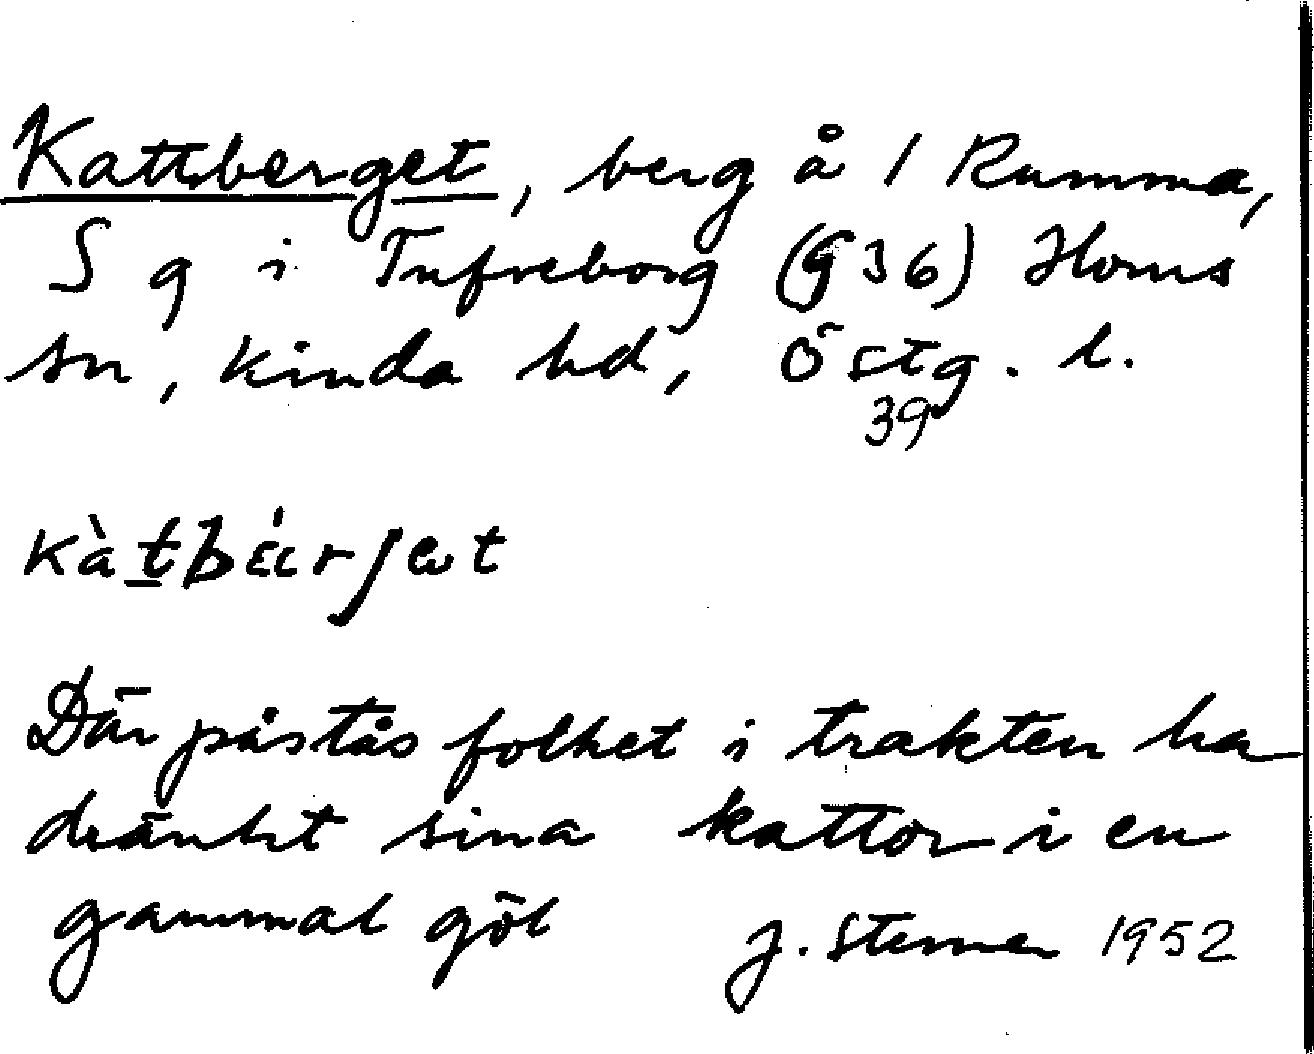 Kattberget, berg å 1 Rumma,
S g i Tufreborg (G36) Horns
sn, Kinda hd, Östg. l.
39
kàtbǽrjet
Där påstås folket i trakten ha
dränkt sina kattor i en
gammal göl J. Sterner 1952